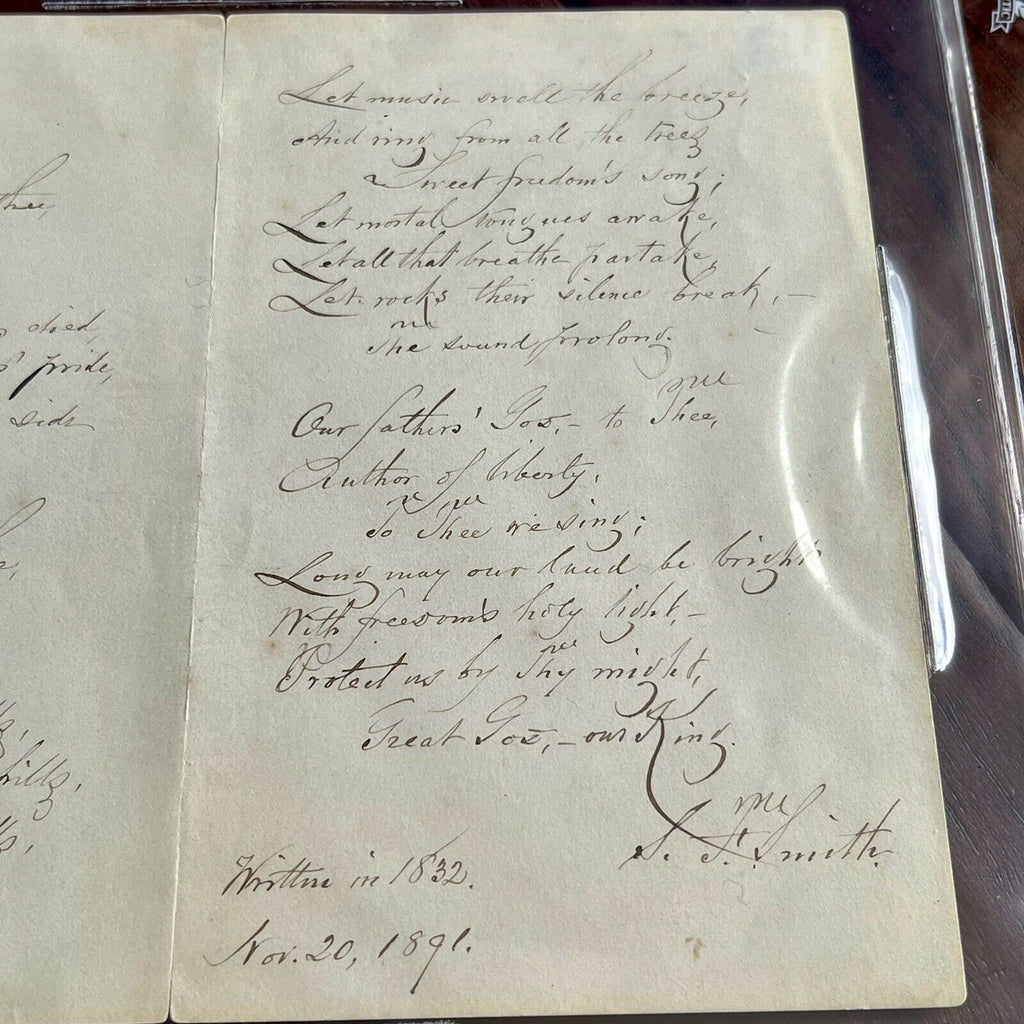 thee,
died,
pride,
side
hills,
Let music swell the breeze,
And ring from all the trees
Sweet freedom's song;
Let mortal tongues awake,
Let all that breathe partake,
Let rocks their silence break, –
The sound prolong.
Our fathers' God, – to Thee,
Author of liberty,
To Thee we sing;
Long may our land be bright
With freedom's holy light, –
Protect us by Thy might,
Great God, – our King.
S. F. Smith.
Written in 1832.
Nov. 20, 1891.